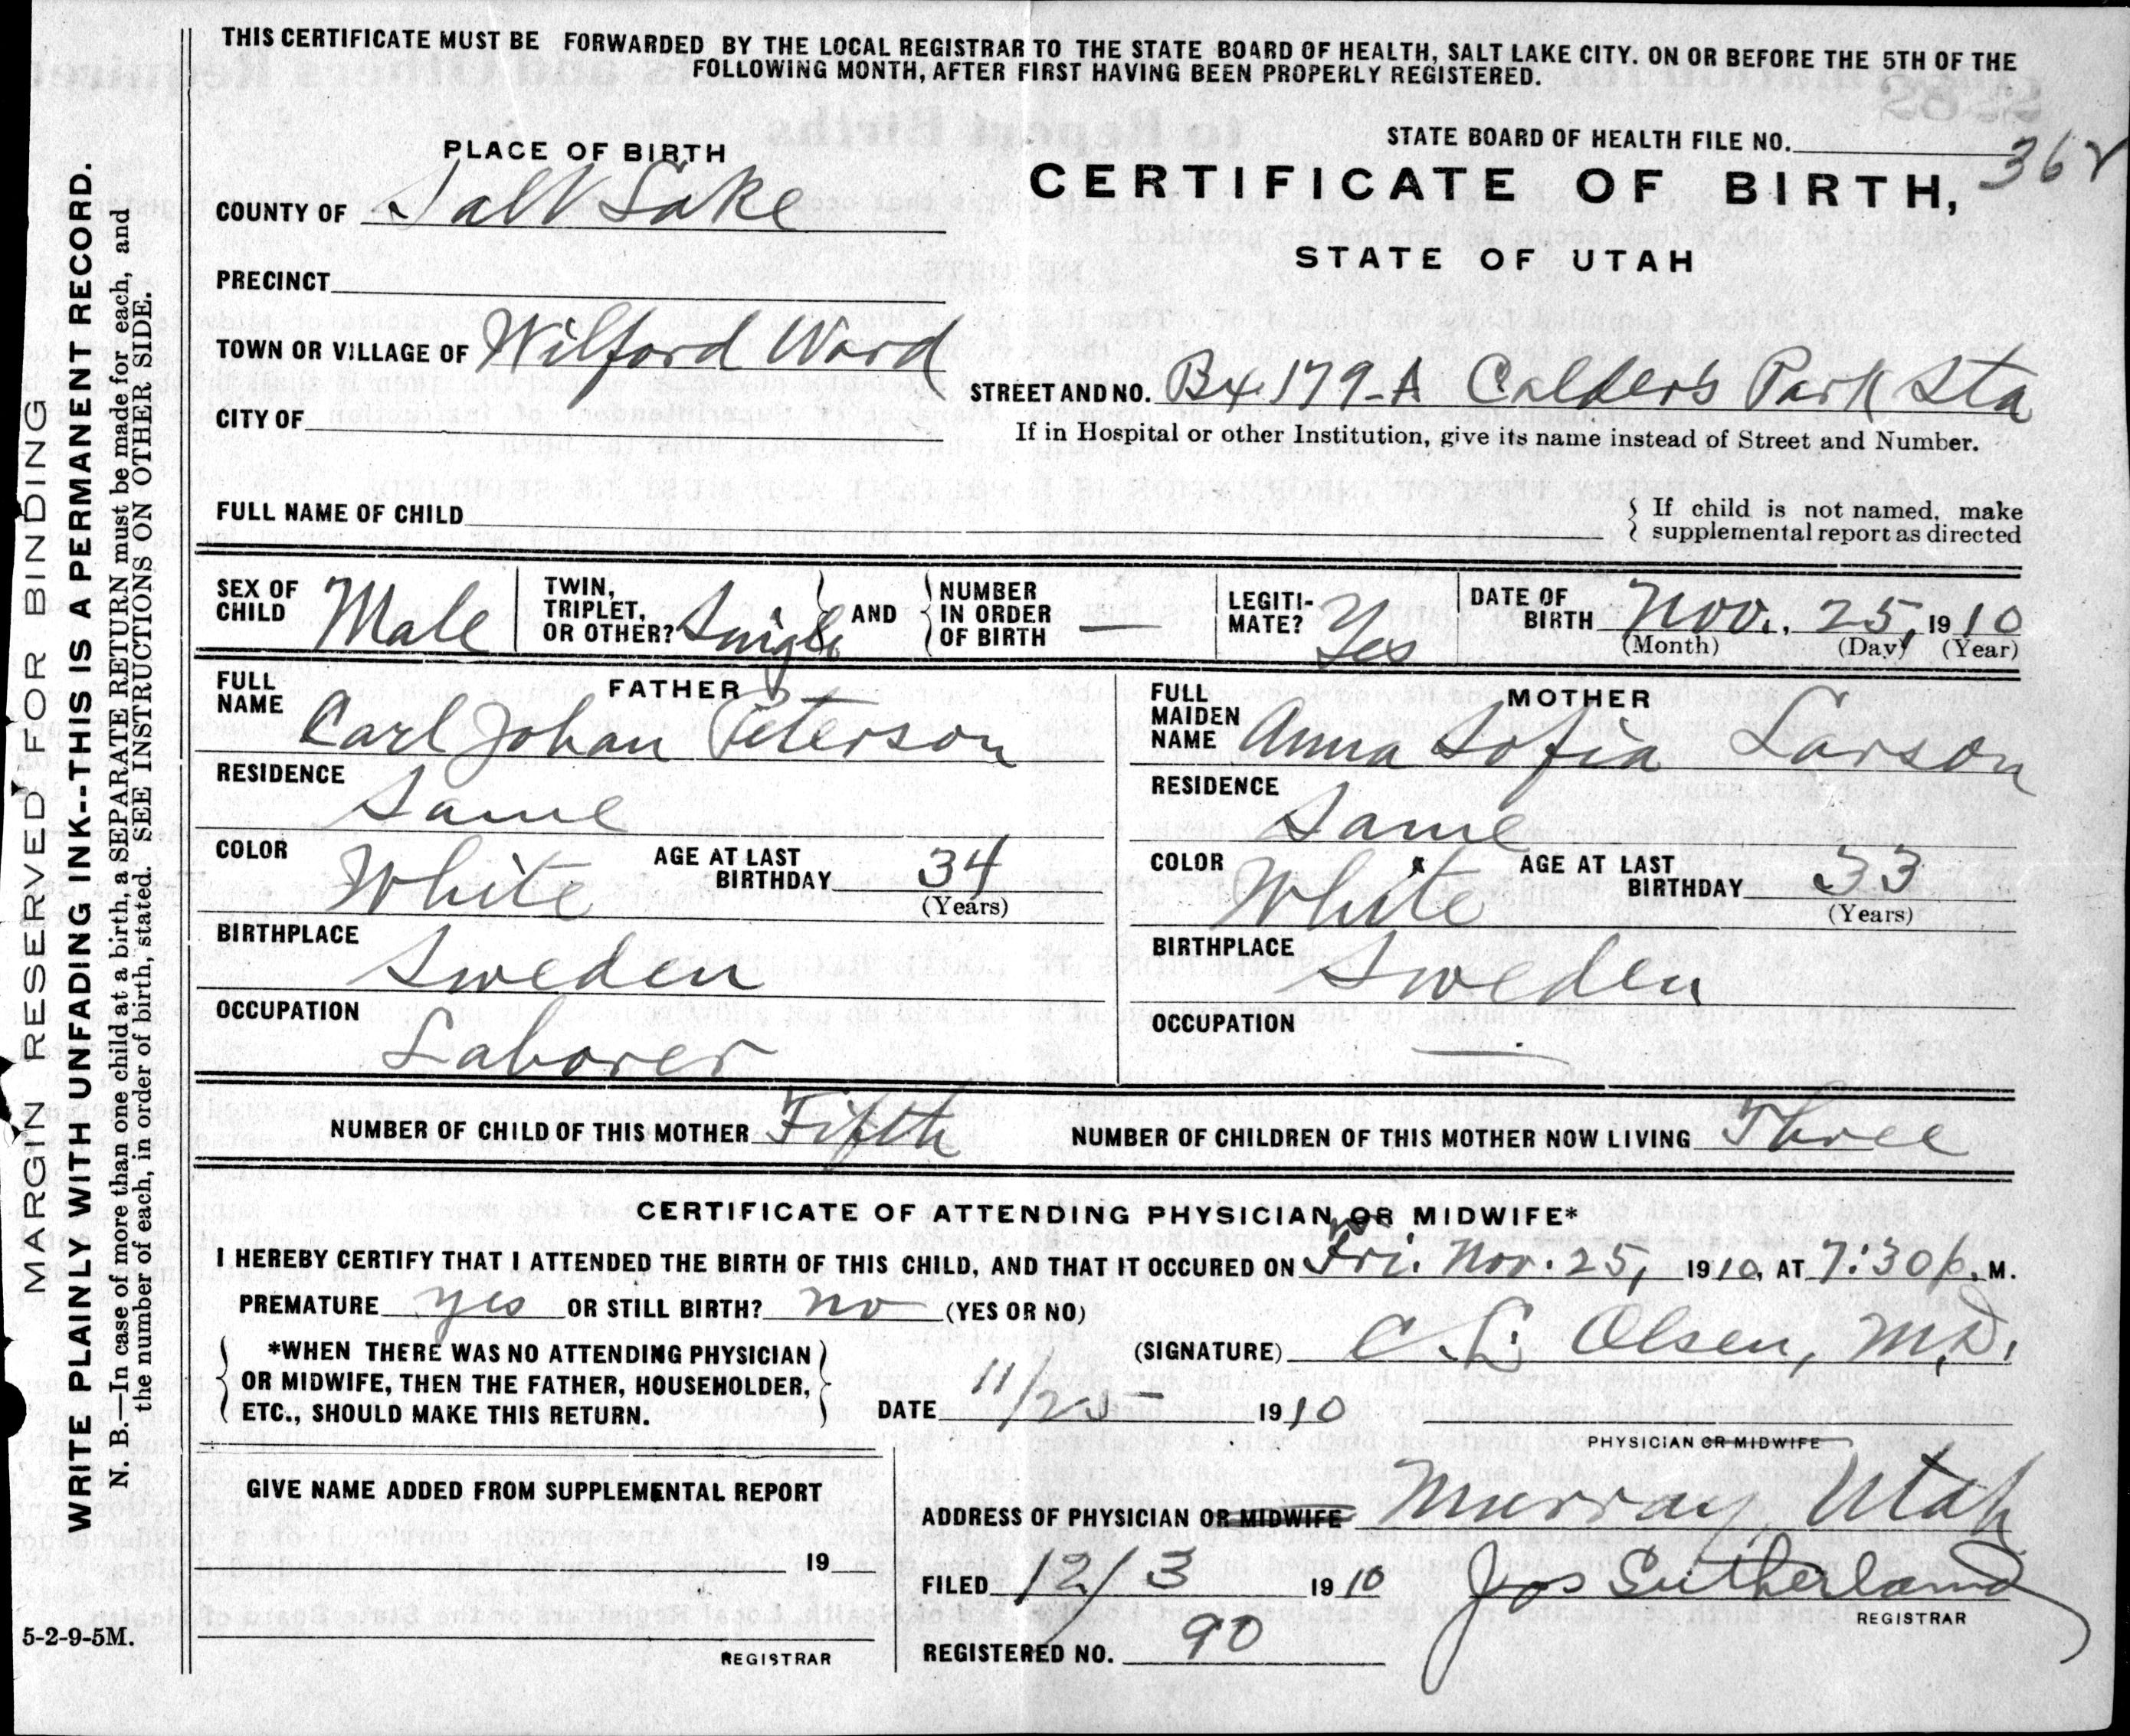 THIS CERTIFICATE MUST BE FORWARDED BY THE LOCAL REGISTRAR TO THE STATE BOARD OF HEALTH, SALT LAKE CITY. ON OR BEFORE THE 5TH OF THE
FOLLOWING MONTH, AFTER FIRST HAVING BEEN PROPERLY REGISTERED.
MARGIN RESERVED FOR BINDING
WRITE PLAINLY WITH UNFADING INK--THIS IS A PERMANENT RECORD.
N. B.—In case of more than one child at a birth, a SEPARATE RETURN must be made for each, and
the number of each, in order of birth, stated. SEE INSTRUCTIONS ON OTHER SIDE.
5-2-9-5M.
PLACE OF BIRTH
COUNTY OF Salt Lake
PRECINCT
TOWN OR VILLAGE OF Wilford Ward
CITY OF
STATE BOARD OF HEALTH FILE NO.
CERTIFICATE OF BIRTH,
STATE OF UTAH
STREET AND NO. Bx. 179-A Calder's Park Sta
If in Hospital or other Institution, give its name instead of Street and Number.
FULL NAME OF CHILD
If child is not named, make
supplemental report as directed
SEX OF CHILD Male
TWIN, TRIPLET, OR OTHER? Single
AND
NUMBER IN ORDER OF BIRTH —
LEGITI-MATE? Yes
DATE OF BIRTH Nov. 25, 1910
(Month) (Day) (Year)
FATHER
FULL NAME Carl Johan Peterson
RESIDENCE Same
COLOR White AGE AT LAST BIRTHDAY 34
(Years)
BIRTHPLACE Sweden
OCCUPATION Laborer
MOTHER
FULL MAIDEN NAME Anna Sofia Larson
RESIDENCE Same
COLOR White AGE AT LAST BIRTHDAY 33
(Years)
BIRTHPLACE Sweden
OCCUPATION —
NUMBER OF CHILD OF THIS MOTHER Fifth NUMBER OF CHILDREN OF THIS MOTHER NOW LIVING Three
CERTIFICATE OF ATTENDING PHYSICIAN OR MIDWIFE*
I HEREBY CERTIFY THAT I ATTENDED THE BIRTH OF THIS CHILD, AND THAT IT OCCURED ON Fri. Nov. 25, 1910, AT 7:30 p. M.
PREMATURE yes OR STILL BIRTH? no (YES OR NO)
*WHEN THERE WAS NO ATTENDING PHYSICIAN
OR MIDWIFE, THEN THE FATHER, HOUSEHOLDER,
ETC., SHOULD MAKE THIS RETURN.
(SIGNATURE) C. L. Olsen, M.D.
DATE 11/25 1910
PHYSICIAN OR MIDWIFE
GIVE NAME ADDED FROM SUPPLEMENTAL REPORT
19
REGISTRAR
ADDRESS OF PHYSICIAN OR MIDWIFE Murray Utah
FILED 12/3 1910 Jos Sutherland
REGISTRAR
REGISTERED NO. 90